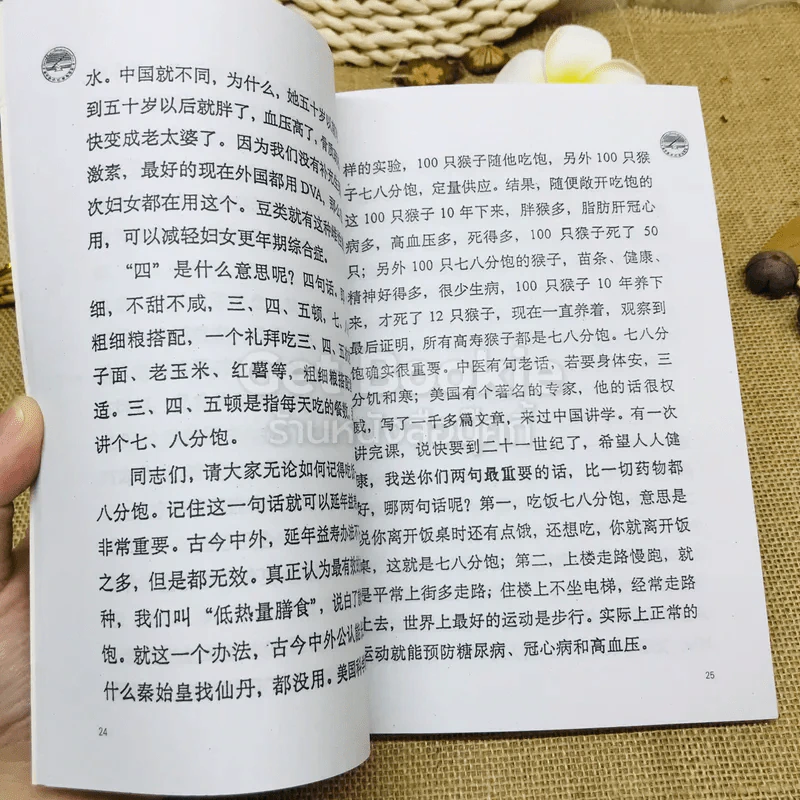 水。中国就不同，为什么，她五十岁以
到五十岁以后就胖了，血压高了，骨质
快变成老太婆了。因为我们没有补充
激素，最好的现在外国都用 DVA，那么
次妇女都在用这个。豆类就有这种
用，可以减轻妇女更年期综合症。
“四”是什么意思呢？四句话。
细，不甜不咸，三、四、五顿，七、
粗细粮搭配，一个礼拜吃三、四、五
子面、老玉米、红薯等，粗细粮搭配
适。三、四、五顿是指每天吃的餐数，
讲个七、八分饱。
同志们，请大家无论如何记得吃
八分饱。记住这一句话就可以延年益
非常重要。古今中外，延年益寿办法
之多，但是都无效。真正认为最有效
种，我们叫“低热量膳食”，说白了
饱。就这一个办法，古今中外公认能
什么秦始皇找仙丹，都没用。美国科
24
样的实验，100 只猴子随他吃饱，另外 100 只猴
子七八分饱，定量供应。结果，随便敞开吃饱的
这 100 只猴子 10 年下来，胖猴多，脂肪肝冠心
病多，高血压多，死得多，100 只猴子死了 50
只；另外 100 只七八分饱的猴子，苗条、健康、
精神好得多，很少生病，100 只猴子 10 年养下
来，才死了 12 只猴子，现在一直养着，观察到
最后证明，所有高寿猴子都是七八分饱。七八分
饱确实很重要。中医有句老话，若要身体安，三
分饥和寒；美国有个著名的专家，他的话很权
威，写了一千多篇文章，来过中国讲学。有一次
讲完课，说快要到二十一世纪了，希望人人健
康，我送你们两句最重要的话，比一切药物都
好，哪两句话呢？第一，吃饭七八分饱，意思是
说你离开饭桌时还有点饿，还想吃，你就离开饭
桌，这就是七八分饱；第二，上楼走路慢跑，就
是平常上街多走路；住楼上不坐电梯，经常走路
上去，世界上最好的运动是步行。实际上正常的
运动就能预防糖尿病、冠心病和高血压。
25
Get Bookie